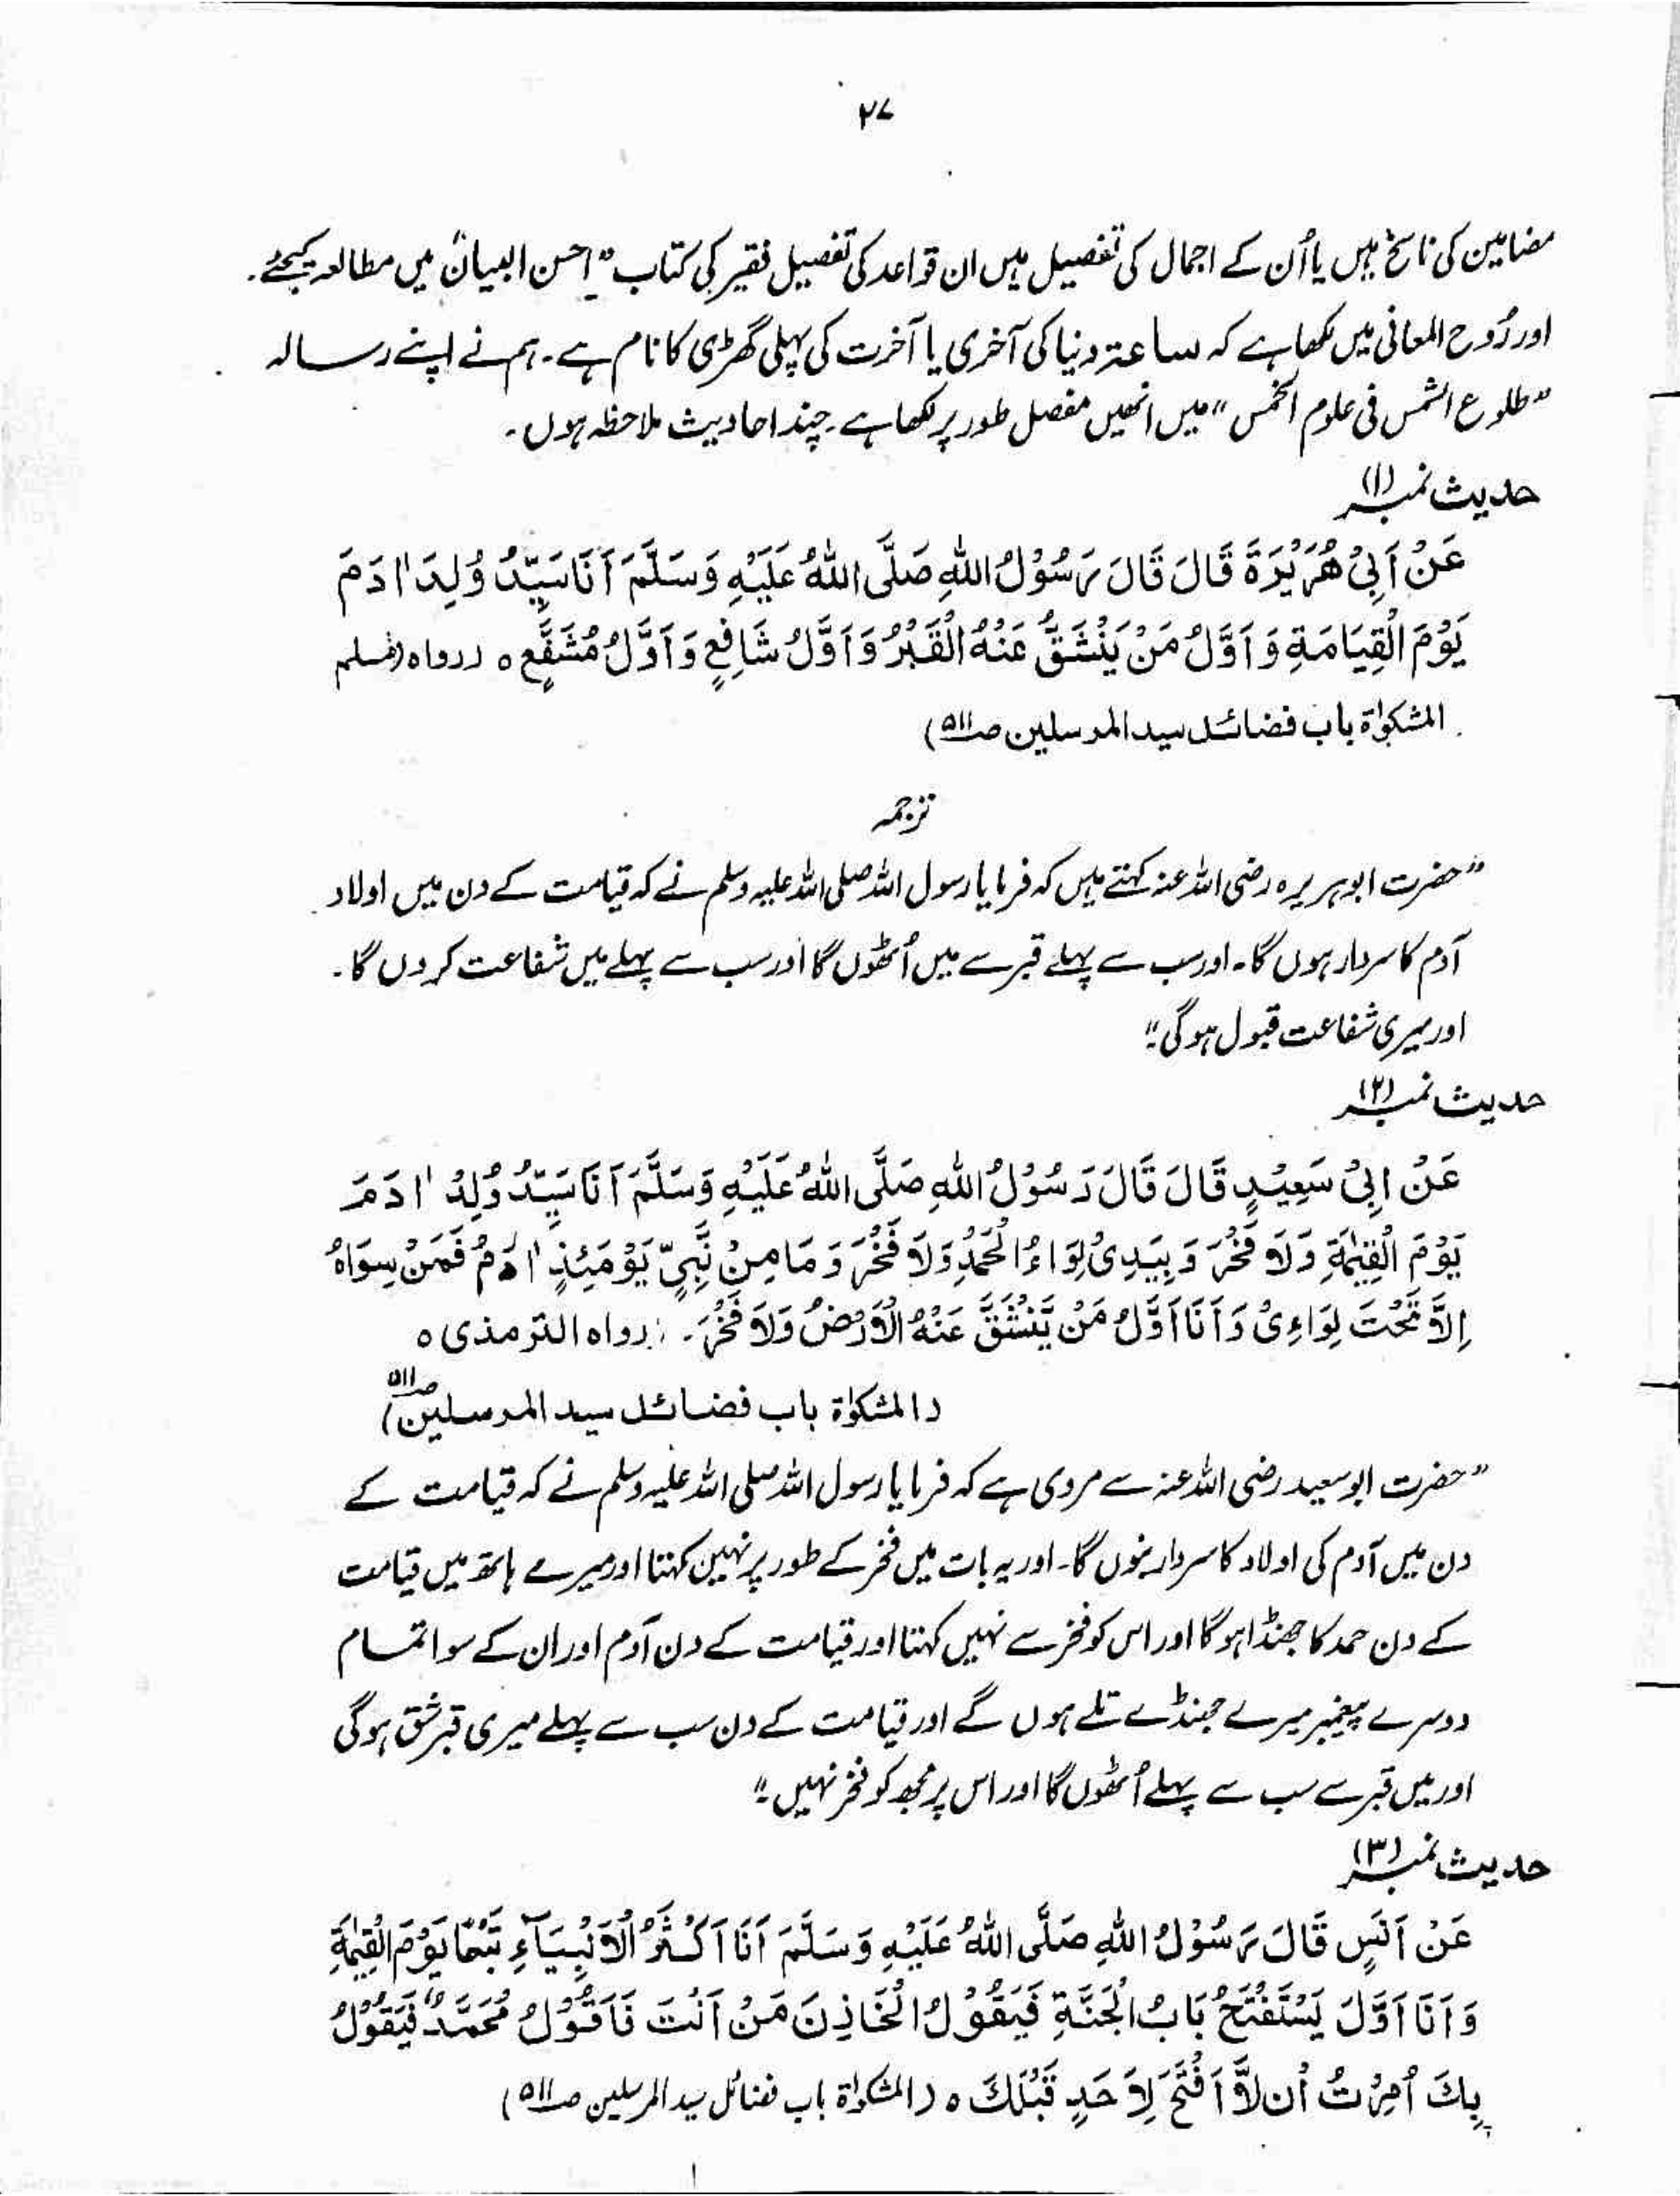 ۲۷
مضامین کی ناسخ ہیں یا اُن کے اجمال کی تفصیل ہیں ان قواعد کی تفصیل فقیر کی کتاب "احسن البیان" میں مطالعہ کیجئے۔
اور رُوح المعانی میں لکھا ہے کہ ساعتہ دنیا کی آخری یا آخرت کی پہلی گھڑی کا نام ہے۔ ہم نے اپنے رسالہ
"طلوع الشمس فی علوم الخمس" میں انھیں مفصل طور پر لکھا ہے۔ چند احادیث ملاحظہ ہوں۔
حدیث نمبر (۱)
عَنْ اَبِیْ هُرَیْرَةَ قَالَ قَالَ رَسُوْلُ اللهِ صَلَّی اللهُ عَلَیْهِ وَسَلَّمَ اَنَا سَیِّدُ وُلِدَ اٰدَمَ
یَوْمَ الْقِیَامَةِ وَ اَوَّلُ مَنْ یَنْشَقُّ عَنْهُ الْقَبْرُ وَ اَوَّلُ شَافِعٍ وَ اَوَّلُ مُشَفَّعٍ ه (رواہ المسلم
المشکوٰة باب فضائل سید المرسلین صـ۵۱۱)
ترجمہ
"حضرت ابوہریرہ رضی اللہ عنہ کہتے ہیں کہ فرمایا رسول اللہ صلی اللہ علیہ وسلم نے کہ قیامت کے دن میں اولاد
آدم کا سردار ہوں گا۔ اور سب سے پہلے قبر سے میں اُٹھوں گا اور سب سے پہلے میں شفاعت کروں گا۔
اور میری شفاعت قبول ہوگی۔"
حدیث نمبر (۲)
عَنْ اَبِیْ سَعِیْدٍ قَالَ قَالَ رَسُوْلُ اللهِ صَلَّی اللهُ عَلَیْهِ وَسَلَّمَ اَنَا سَیِّدُ وُلِدُ اٰدَمَ
یَوْمَ الْقِیٰمَةِ وَلَا فَخْرَ وَ بِیَدِیْ لِوَاءُ الْحَمْدِ وَلَا فَخْرَ وَ مَا مِنْ نَّبِیٍّ یَوْمَئِذٍ اٰدَمُ فَمَنْ سِوَاهُ
اِلَّا تَحْتَ لِوَاءِیْ وَ اَنَا اَوَّلُ مَنْ یَّنْشَقَّ عَنْهُ الْاَرْضُ وَلَا فَخْرَ۔ (رواہ الترمذی ه
(المشکوٰة باب فضائل سید المرسلین صـ۵۱۱)
"حضرت ابو سعید رضی اللہ عنہ سے مروی ہے کہ فرمایا رسول اللہ صلی اللہ علیہ وسلم نے کہ قیامت کے
دن میں آدم کی اولاد کا سردار بنوں گا۔ اور یہ بات میں فخر کے طور پر نہیں کہتا اور میرے ہاتھ میں قیامت
کے دن حمد کا جھنڈا ہوگا اور اس کو فخر سے نہیں کہتا اور قیامت کے دن آدم اور ان کے سوا تمام
دوسرے پیغمبر میرے جھنڈے تلے ہوں گے اور قیامت کے دن سب سے پہلے میری قبر شق ہوگی
اور میں قبر سے سب سے پہلے اُٹھوں گا اور اس پر مجھ کو فخر نہیں۔"
حدیث نمبر (۳)
عَنْ اَنَسٍ قَالَ رَسُوْلُ اللهِ صَلَّی اللهُ عَلَیْهِ وَسَلَّمَ اَنَا اَکْثَرُ الْاَنْبِیَآءِ تَبْعًا یَوْمَ الْقِیٰمَةِ
وَ اَنَا اَوَّلَ یَسْتَفْتَحُ بَابُ الْجَنَّةِ فَیَقُوْلُ الْخَاذِنَ مَنْ اَنْتَ فَاَقُوْلُ مُحَمَّدٌ فَیَقُوْلُ
بِكَ اُمِرْتُ اُن لَّا اَفْتَحَ لِاَحَدٍ قَبْلَكَ ه (المشکوٰة باب فضائل سید المرسلین صـ۵۱۱)